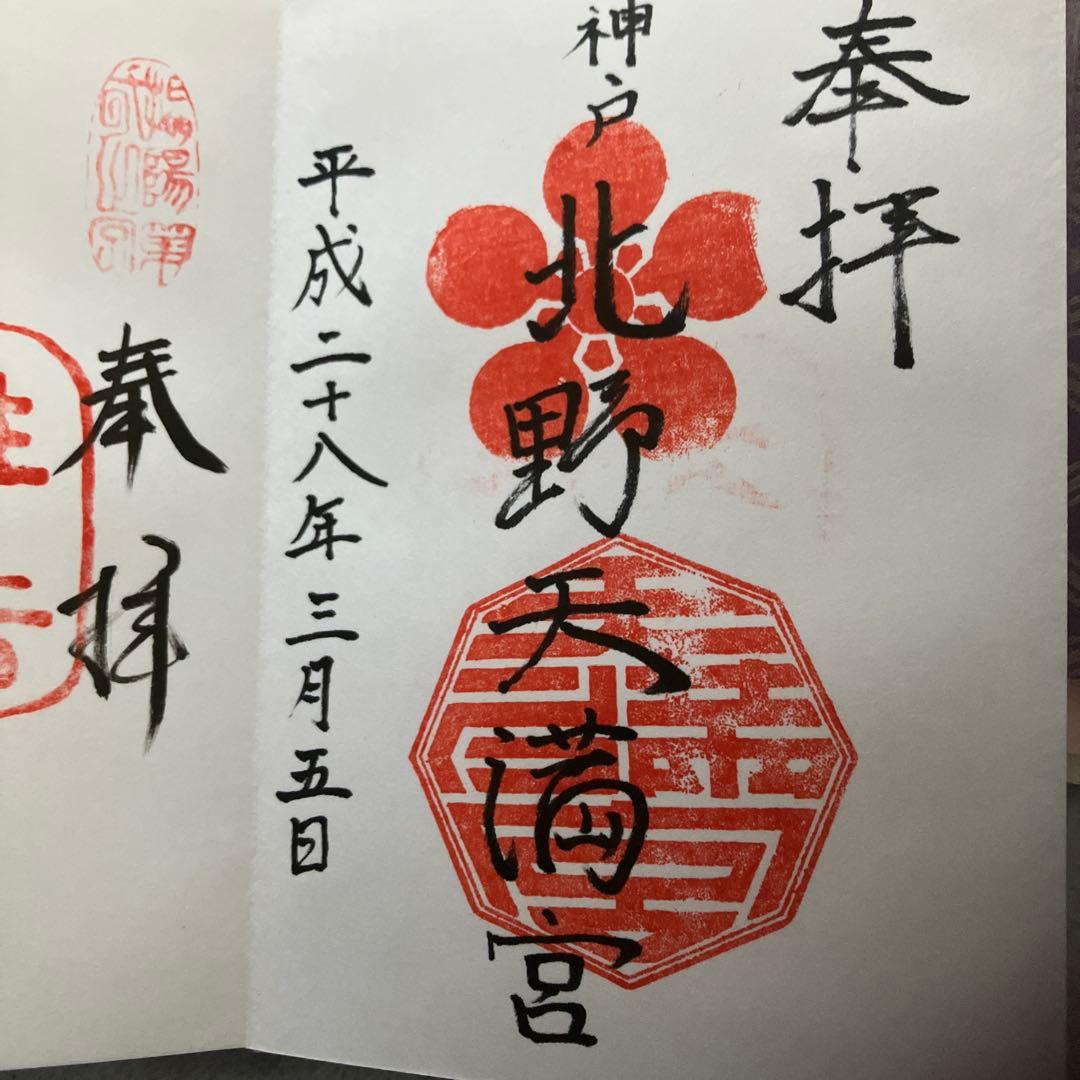 奉拝
神戸
北野天満宮
平成二十八年三月五日
奉拝